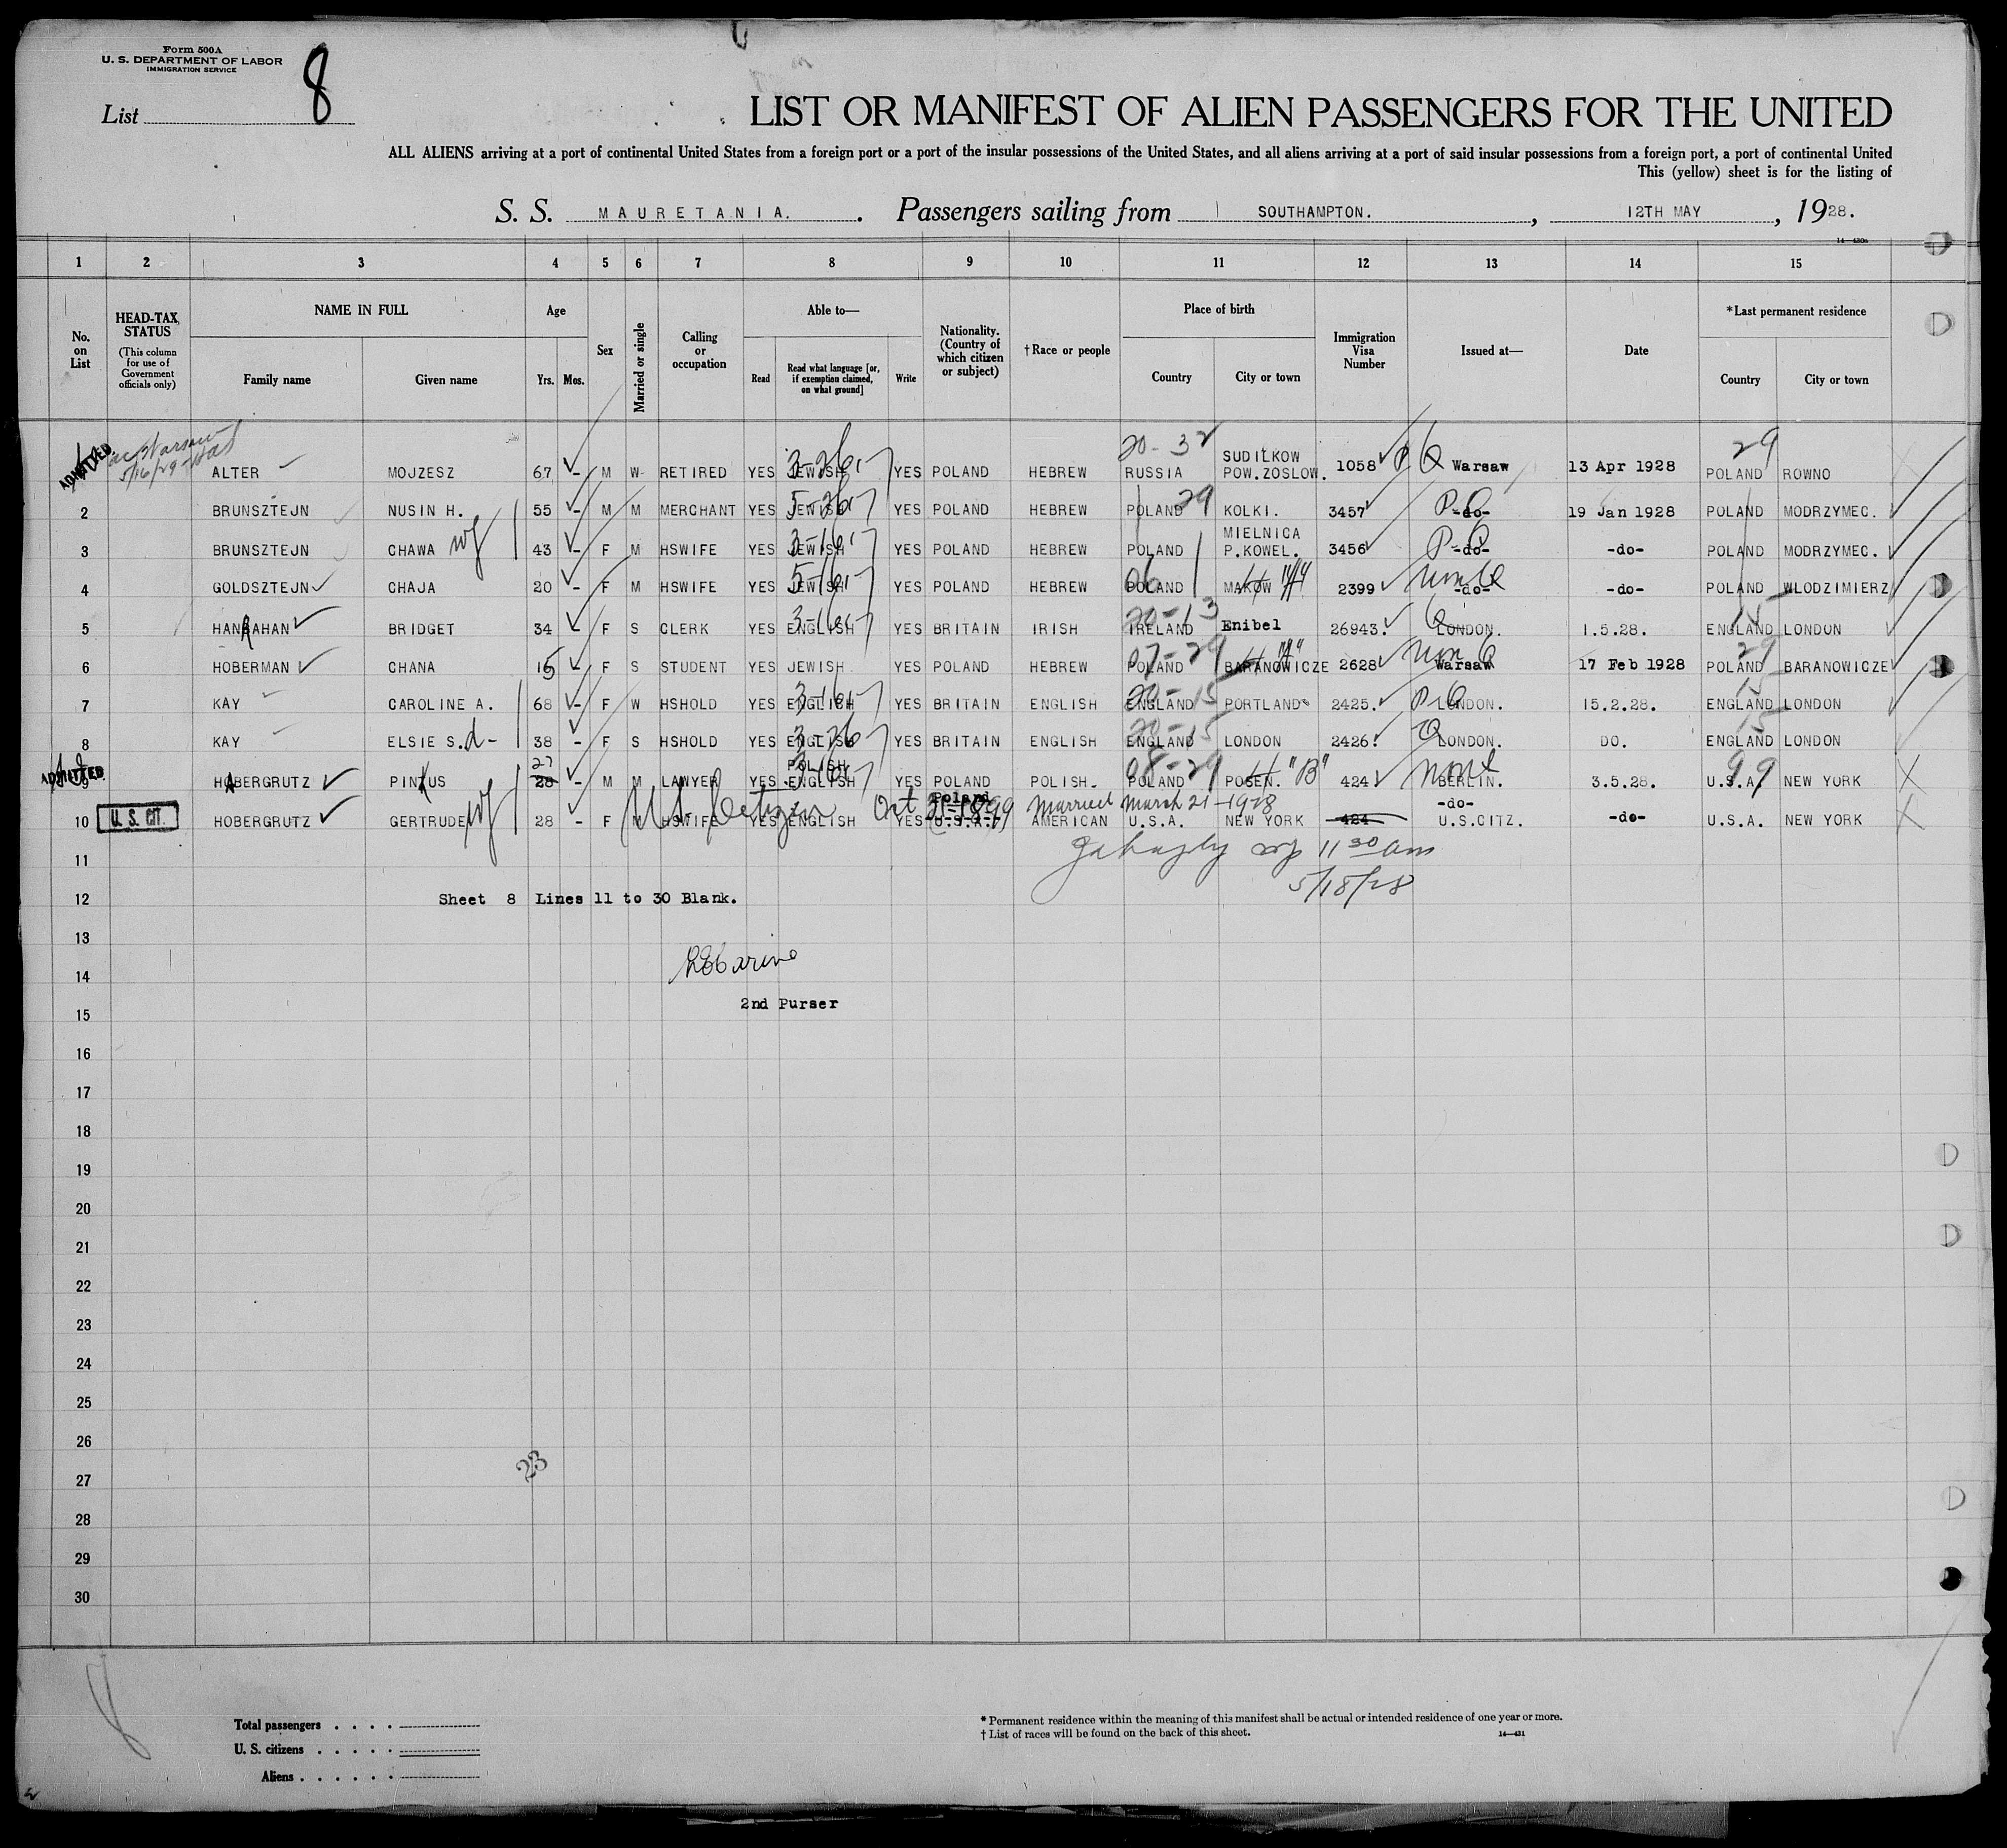 Form 500A
U. S. DEPARTMENT OF LABOR
IMMIGRATION SERVICE
List 8
LIST OR MANIFEST OF ALIEN PASSENGERS FOR THE UNITED
ALL ALIENS arriving at a port of continental United States from a foreign port or a port of the insular possessions of the United States, and all aliens arriving at a port of said insular possessions from a foreign port, a port of continental United
This (yellow) sheet is for the listing of
S. S. MAURETANIA. Passengers sailing from SOUTHAMPTON. , 12TH MAY , 1928.
1 2 3 4 5 6 7 8 9 10 11 12 13 14 15
No. on List
HEAD-TAX STATUS (This column for use of Government officials only)
NAME IN FULL Family name Given name
Age Yrs. Mos.
Sex
Married or single
Calling or occupation
Able to— Read Read what language [or, if exemption claimed, on what ground] Write
Nationality. (Country of which citizen or subject)
† Race or people
Place of birth Country City or town
Immigration Visa Number
Issued at—
Date
*Last permanent residence Country City or town
ADMITTED ALTER MOJZESZ 67 - M W RETIRED YES JEWISH YES POLAND HEBREW 20-32 RUSSIA SUDILKOW POW.ZOSLOW. 1058 Warsaw 13 Apr 1928 29 POLAND ROWNO
2 BRUNSZTEJN NUSIN H. 55 - M M MERCHANT YES JEWISH YES POLAND HEBREW POLAND 29 KOLKI. 3457 -do- 19 Jan 1928 POLAND MODRZYMEC.
3 BRUNSZTEJN CHAWA wf 43 - F M HSWIFE YES JEWISH YES POLAND HEBREW POLAND MIELNICA P.KOWEL. 3456 -do- -do- POLAND MODRZYMEC.
4 GOLDSZTEJN CHAJA 20 - F M HSWIFE YES JEWISH YES POLAND HEBREW 06 POLAND MAKOW 2399 -do- -do- POLAND WLODZIMIERZ
5 HANRAHAN BRIDGET 34 - F S CLERK YES ENGLISH YES BRITAIN IRISH 20-13 IRELAND Enibel 26943. LONDON. 1.5.28. 15 ENGLAND LONDON
6 HOBERMAN CHANA 15 - F S STUDENT YES JEWISH YES POLAND HEBREW 07-29 POLAND BARANOWICZE 2628 Warsaw 17 Feb 1928 29 POLAND BARANOWICZE
7 KAY CAROLINE A. 68 - F W HSHOLD YES ENGLISH YES BRITAIN ENGLISH 20-15 ENGLAND PORTLAND 2425. LONDON. 15.2.28. 15 ENGLAND LONDON
8 KAY ELSIE S. d- 38 - F S HSHOLD YES ENGLISH YES BRITAIN ENGLISH 20-15 ENGLAND LONDON 2426. LONDON. DO. 15 ENGLAND LONDON
ADMITTED 9 HABERGRUTZ PINKUS 27 28 - M M LAWYER YES POLISH ENGLISH YES POLAND POLISH. 08-29 POLAND POSEN. "B" 424 BERLIN. 3.5.28. 99 U.S.A. NEW YORK
Poland Married March 21-1928 -do-
10 U. S. CIT. HOBERGRUTZ GERTRUDE wf 28 - F M HSWIFE YES ENGLISH YES U.S.A. AMERICAN U.S.A. NEW YORK 424 U.S.CITZ. -do- U.S.A. NEW YORK
U.S. Citizen
11 11 30 am
5/18/28
12 Sheet 8 Lines 11 to 30 Blank.
13
14
15 2nd Purser
16
17
18
19
20
21
22
23
24
25
26
23
27
28
29
30
Total passengers
U. S. citizens
Aliens
* Permanent residence within the meaning of this manifest shall be actual or intended residence of one year or more.
† List of races will be found on the back of this sheet.
14—431